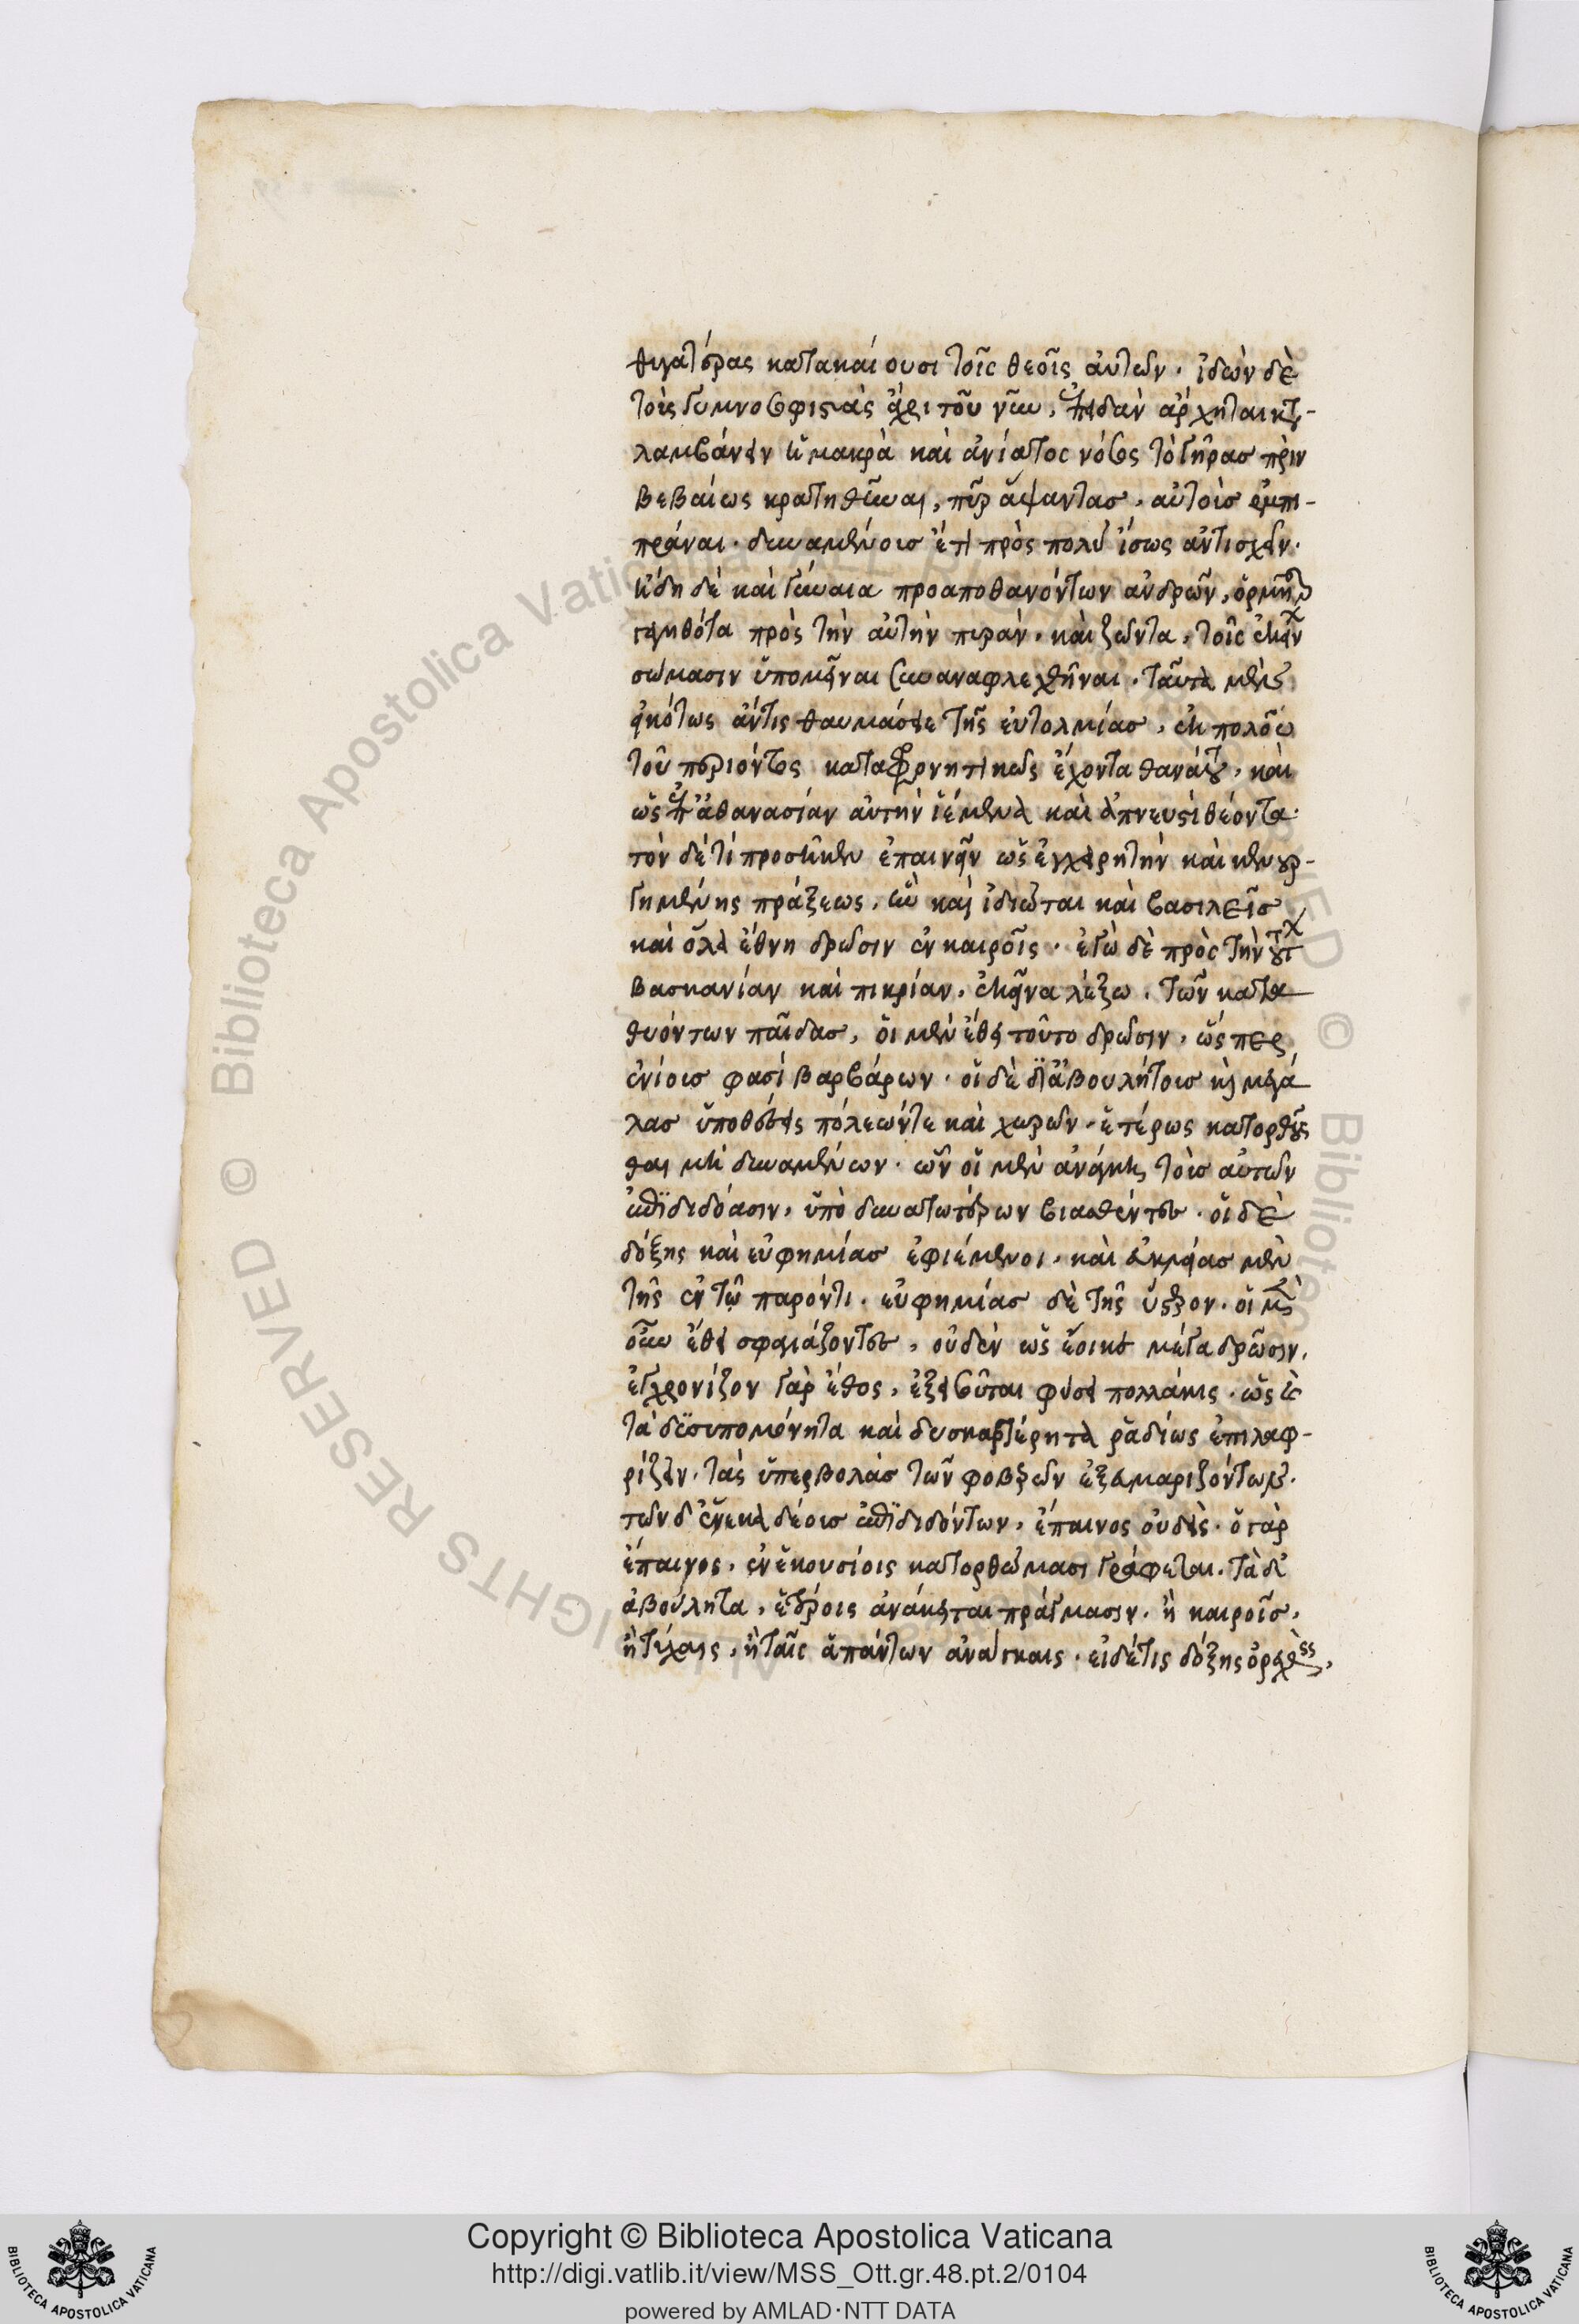 θυγατέρας κατακαίουσι τοῖς θεοῖς αὐτῶν. ἰδὼν δὲ
τοὺς γυμνοσοφιστὰς ἄχρι τοῦ νῦν, ἐπειδὰν ἄρχηται κατα-
λαμβάνειν ἡ μακρὰ καὶ ἀνίατος νόσος τὸ γῆρας πρὶν
βεβαίως κρατηθῆναι, πῦρ ἅψαντας, αὑτοὺς ἐμπι-
πράναι. δυναμένους ἔτι πρὸς πολὺ ἴσως ἀντισχεῖν.
ἤδη δὲ καὶ γύναια προαποθανόντων ἀνδρῶν, ὁρμῆσαι
γεγηθότα πρὸς τὴν αὐτὴν πυράν. καὶ ζῶντα, τοῖς ἐκείνων
σώμασιν ὑπομεῖναι συναναφλεχθῆναι. ταῦτα μὲν
εἰκότως ἄν τις θαυμάσειε τῆς εὐτολμίας, ἐκ πολλοῦ
τοῦ περιόντος καταφρονητικῶς ἔχοντα θανάτου, καὶ
ὡς ἐπ' ἀθανασίαν αὐτὴν ἱέμενα καὶ ἀπνευστὶ θέοντα.
τὸν δὲ τί προσῆκεν ἐπαινεῖν ὡς ἐγχειρητὴν κεκαινουρ-
γημένης πράξεως, ἣν καὶ ἰδιῶται καὶ βασιλεῖς
καὶ ὅλα ἔθνη δρῶσιν ἐν καιροῖς. ἐγὼ δὲ πρὸς τὴν τούτων
βασκανίαν καὶ πικρίαν, ἐκεῖνα λέξω. τῶν κατα
θυόντων παῖδας, οἱ μὲν ἔθει τοῦτο δρῶσιν, ὥσπερ
ἐνίους φασὶ βαρβάρων. οἱ δὲ δι' ἀβουλήτους καὶ μεγά
λας ὑποθέσεις πόλεών τε καὶ χωρῶν. ἑτέρως κατορθοῦσ
θαι μὴ δυναμένων. ὧν οἱ μὲν ἀνάγκῃ τοὺς αὑτῶν
ἐπιδιδόασιν, ὑπὸ δυνατωτέρων βιασθέντες. οἱ δὲ
δόξης καὶ εὐφημίας ἐφιέμενοι. καὶ εὐκλείας μὲν
τῆς ἐν τῷ παρόντι. εὐφημίας δὲ τῆς ὕστερον. οἱ μὲν
οὖν ἔθει σφαγιάζοντες, οὐδὲν ὡς ἔοικε μέγα δρῶσιν.
ἐγχρονίζον γὰρ ἔθος, ἐξισοῦται φύσει πολλάκις. ὡς καὶ
τὰ δυσυπομόνητα καὶ δυσκαρτέρητα ῥᾳδίως ἐπελαφ-
ρίζειν. τὰς ὑπερβολὰς τῶν φοβερῶν ἐξευμαρίζοντων.
τῶν δ' ἕνεκα δέους ἐπιδιδόντων, ἔπαινος οὐδείς. ὁ γὰρ
ἔπαινος, ἐν ἑκουσίοις κατορθώμασι γράφεται. τὰ δ'
ἀβούλητα, ἑτέροις ἀνάκειται πράγμασιν. ἢ καιροῖς,
ἢ τύχαις, ἢ ταῖς ἁπάντων ἀνάγκαις. εἰ δέ τις δόξης ὀρεχθείς,
Copyright © Biblioteca Apostolica Vaticana
http://digi.vatlib.it/view/MSS_Ott.gr.48.pt.2/0104
powered by AMLAD·NTT DATA